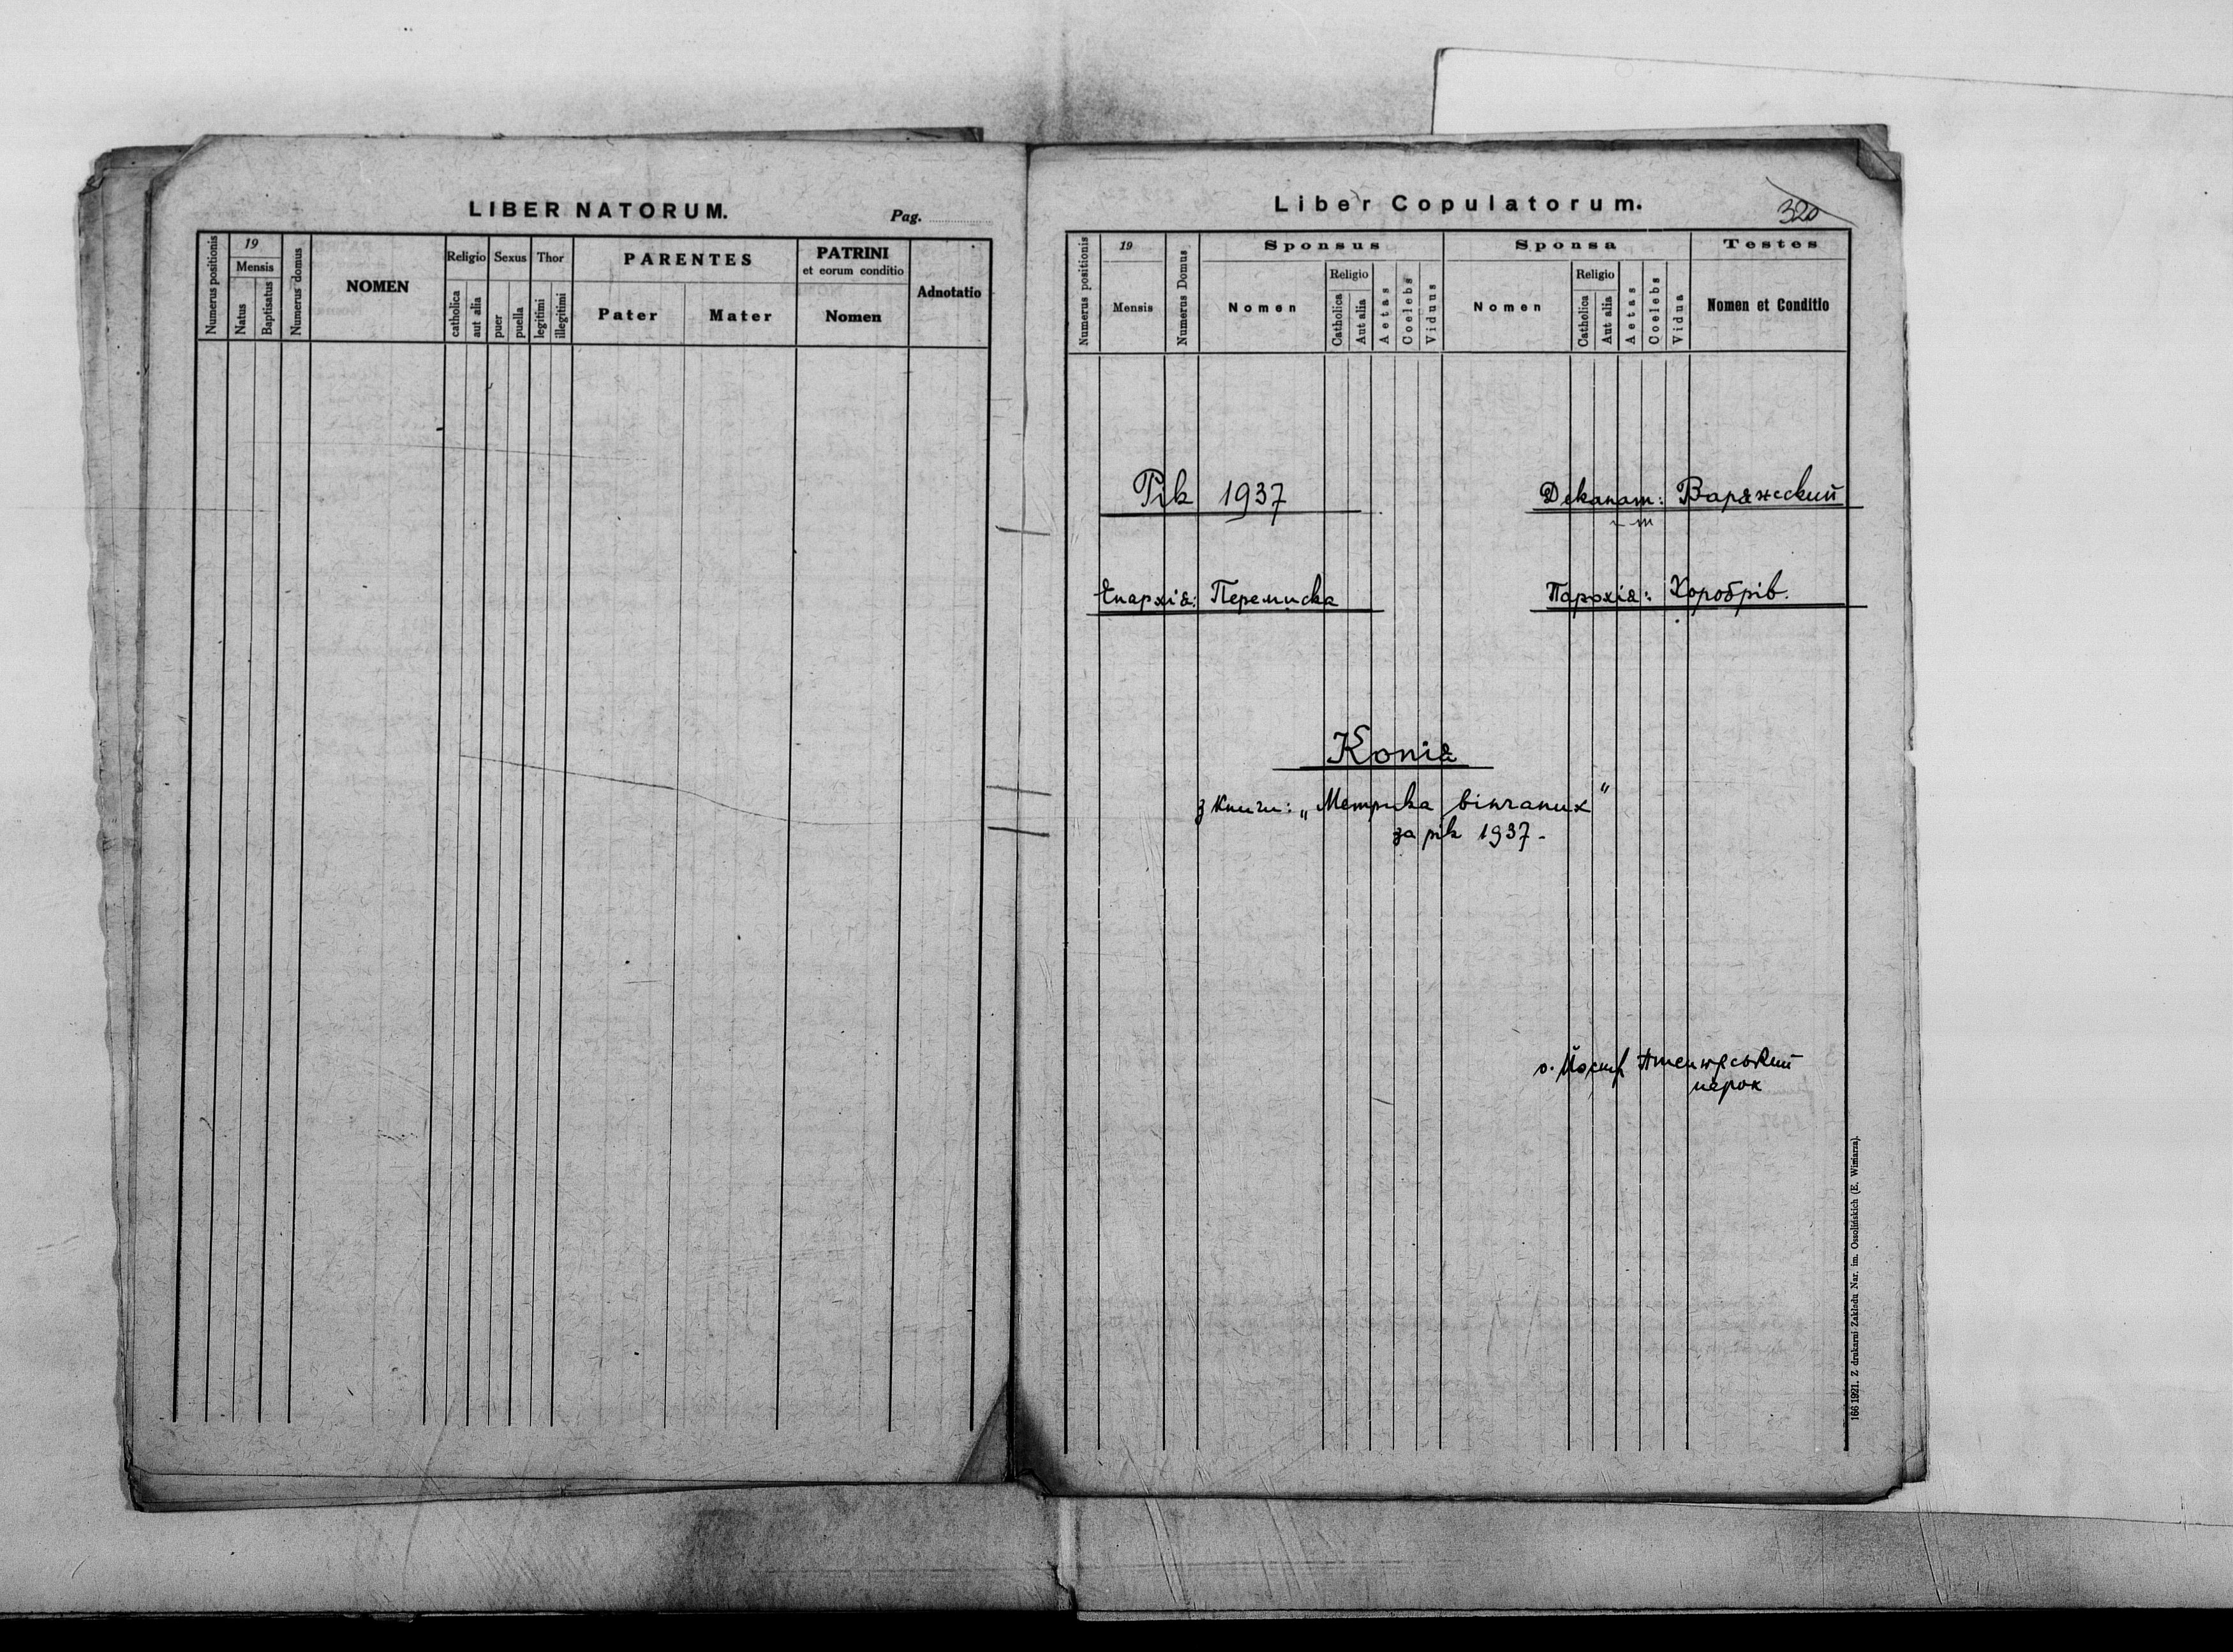 LIBER NATORUM.
Pag.
Numerus positionis
19
Mensis
Natus
Baptisatus
Numerus domus
NOMEN
Religio
catholica
aut alia
Sexus
puer
puella
Thor
legitimi
illegitimi
PARENTES
Pater
Mater
PATRINI
et eorum conditio
Nomen
Adnotatio
Liber Copulatorum.
320
Numerus positionis
19
Mensis
Numerus Domus
Sponsus
Nomen
Religio
Catholica
Aut alia
Aetas
Coelebs
Viduus
Sponsa
Nomen
Religio
Catholica
Aut alia
Aetas
Coelebs
Vidua
Testes
Nomen et Conditio
Рік 1937
Деканат: Варяжский
Епархія: Перемиска
Парохія: Хоробрів.
Копія
з книги: „Метрика вінчаних"
за рік 1937-
о. Йосиф
парох
166 1921. Z drukarni Zakładu Nar. im. Ossolińskich (E. Winiarza).